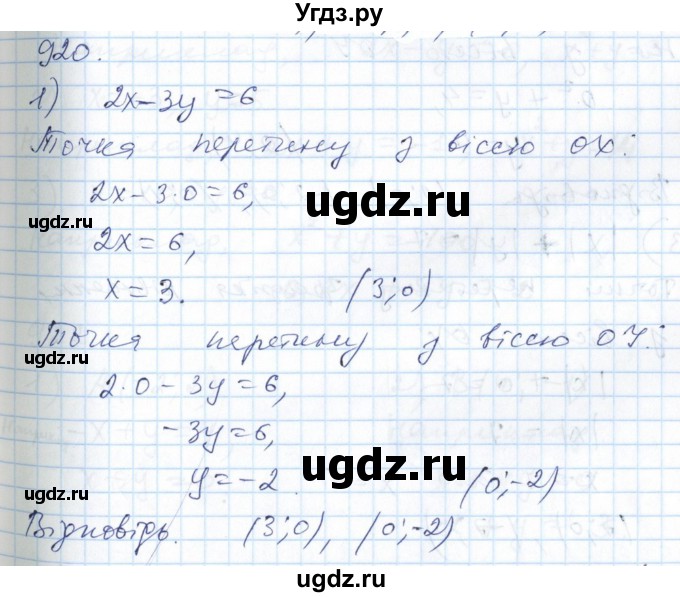 Угдз.ру
920.
1) 2x-3y=6
Точка перетину з віссю OX:
2x-3·0=6,
ugdz.ru
ugdz.ru
2x=6,
x=3. (3;0)
Точка перетину з віссю OY:
ugdz.ru
2·0-3y=6,
ugdz.ru
-3y=6,
y=-2. (0;-2)
ugdz.ru
Відповідь. (3;0), (0;-2)
ugdz.ru
ugdz.ru